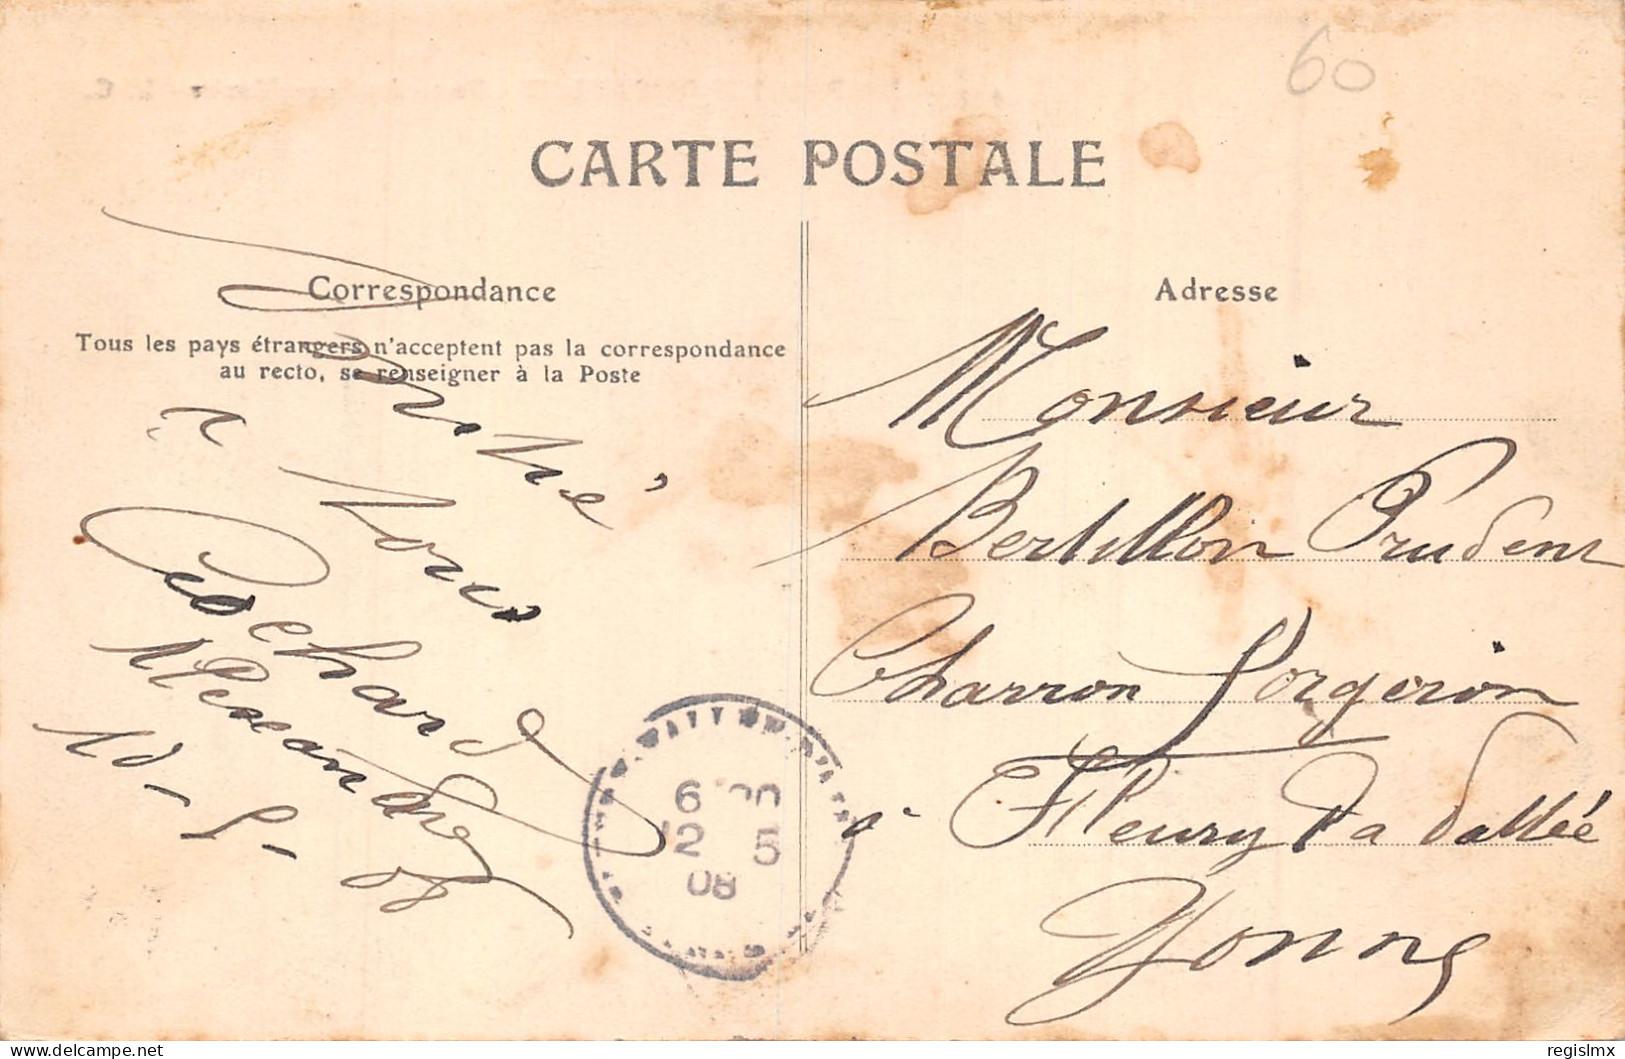 60
CARTE POSTALE
Correspondance
Tous les pays étrangers n'acceptent pas la correspondance
au recto, se renseigner à la Poste
Amitié
à tous
Cochard
Alexandre
10-5-08
6
12 5
08
Adresse
Monsieur
Bertillon Prudent
Charron Forgeron
à Fleury La Vallée
Yonne
regislmx
www.delcampe.net